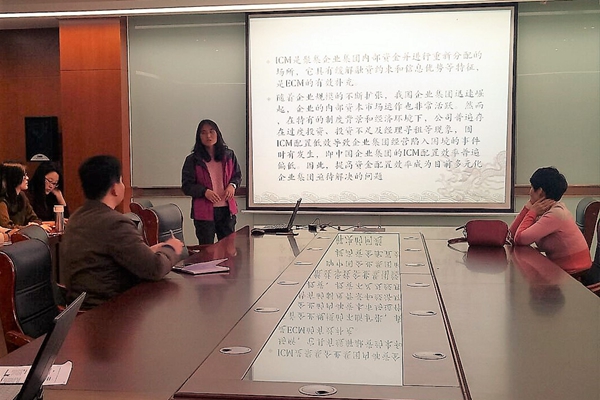 ICM是聚集企业集团内部资金并进行重新分配的
场所，它具有缓解融资约束和信息优势等特征，
是ECM的有效补充。
随着企业规模的不断扩张，我国企业集团迅速崛
起，企业的内部资本市场运作也非常活跃。然而
，在特有的制度背景和经济环境下，公司普遍存
在过度投资、投资不足及经理寻租等现象，因
ICM配置低效率导致企业集团经营陷入困境的事件
时有发生，即中国企业集团的ICM配置效率普遍
降低。因此，提高资金配置效率成为目前多元化
企业集团亟待解决的问题